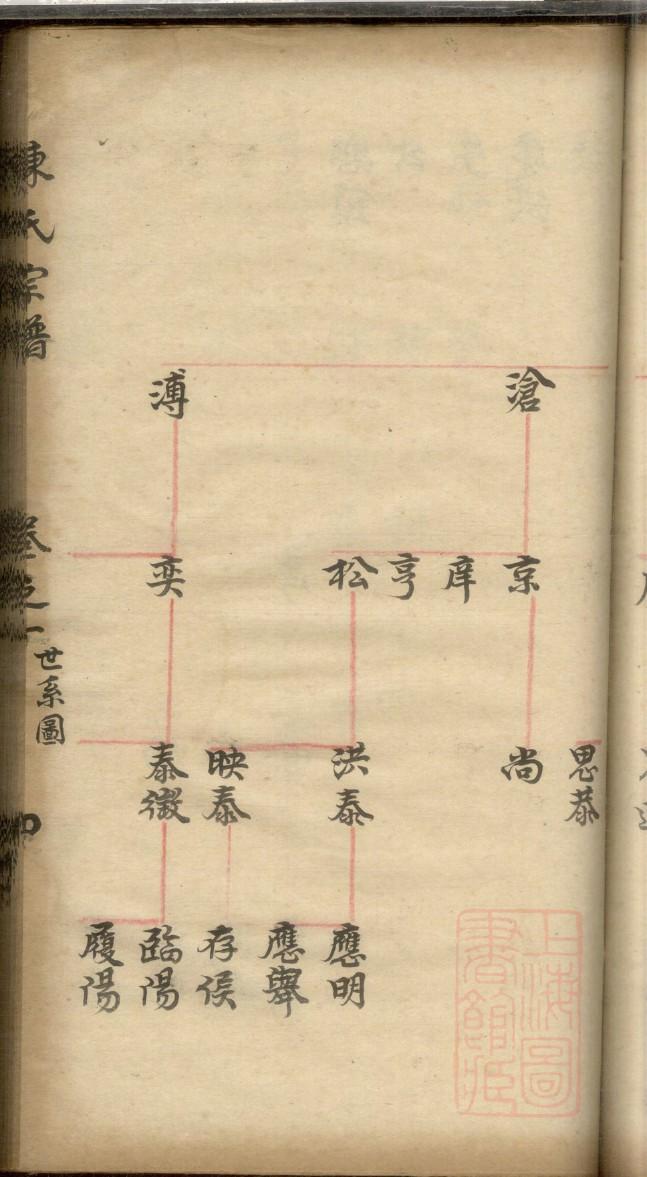 滄
溥
京
庠
亨
松
奕
思恭
尚
洪泰
映泰
泰徽
應明
應舉
存侯
臨陽
履陽
陳氏宗譜
卷之一
世系圖
上海圖
書館藏